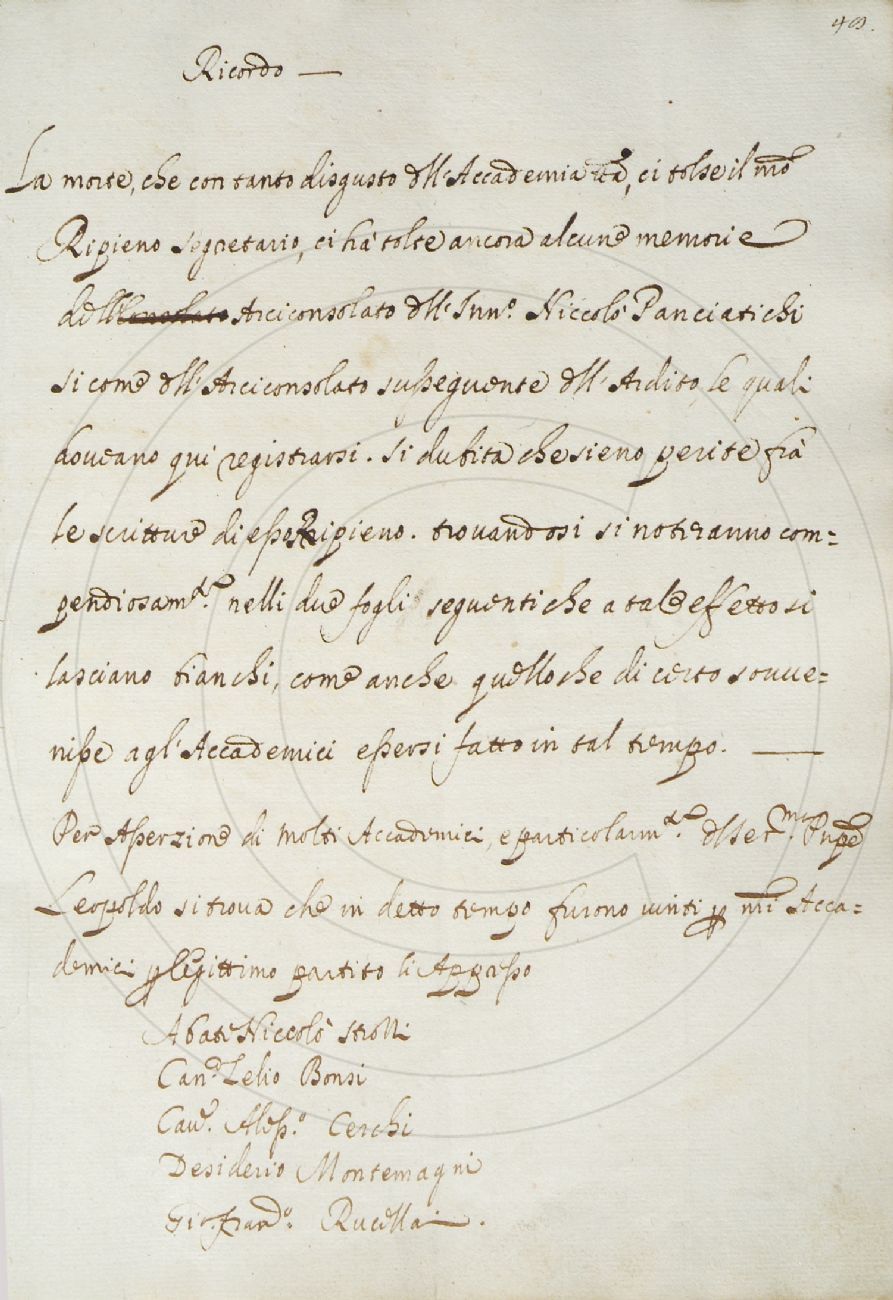 Ricordo —
La morte, che con tanto disgusto dll'Accademia ñra, ci tolse il ñro
Ripieno segretario, ci hà tolte ancora alcune memorie
dell' Consolato Arciconsolato dll'Inn.° Niccolò Panciatichi
si come dll'Arciconsolato susseguente dll'Ardito, le quali
doveano qui registrarsi. Si dubita che sieno perite frà
le scritture di esso Ripieno. trovandosi si noteranno com=
pendiosam.te nelli due fogli seguenti che a tale effetto si
lasciano bianchi, come anche quello che di certo sovve=
nisse agl'Accademici essersi fatto in tal tempo. —
Per Asserzione di molti Accademici, e particolarm.te dl Ser.mo Pnpe
Leopoldo si trova che in detto tempo furono vinti p ñri Acca=
demici p legittimo partito li Appresso
Abate Niccolò Strozzi
Can.co Lelio Bonsi
Cav.re Aless.° Cerchi
Desiderio Montemagni
Gio. Fran.° Rucellai.